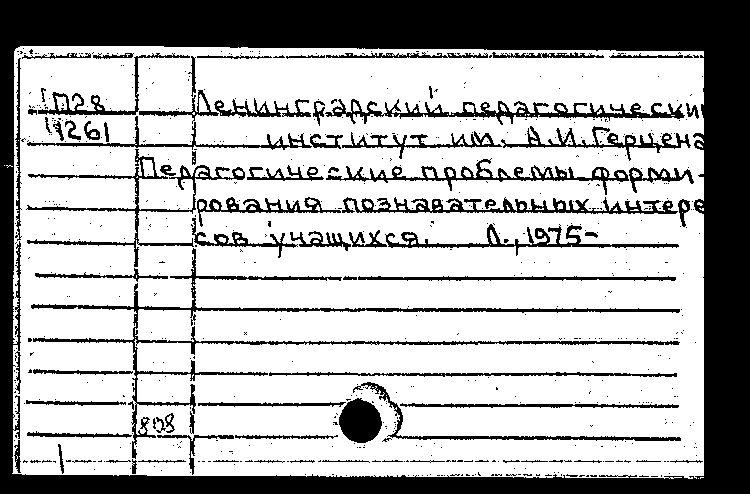 П28
1261
Ленинградский педагогически
институт им. А.И.Герцена
Педагогические проблемы форми-
рования познавательных интере
сов учащихся. Л., 1975-
808